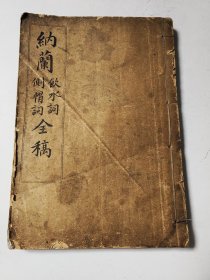 納蘭
飲水詞
側帽詞
全稿